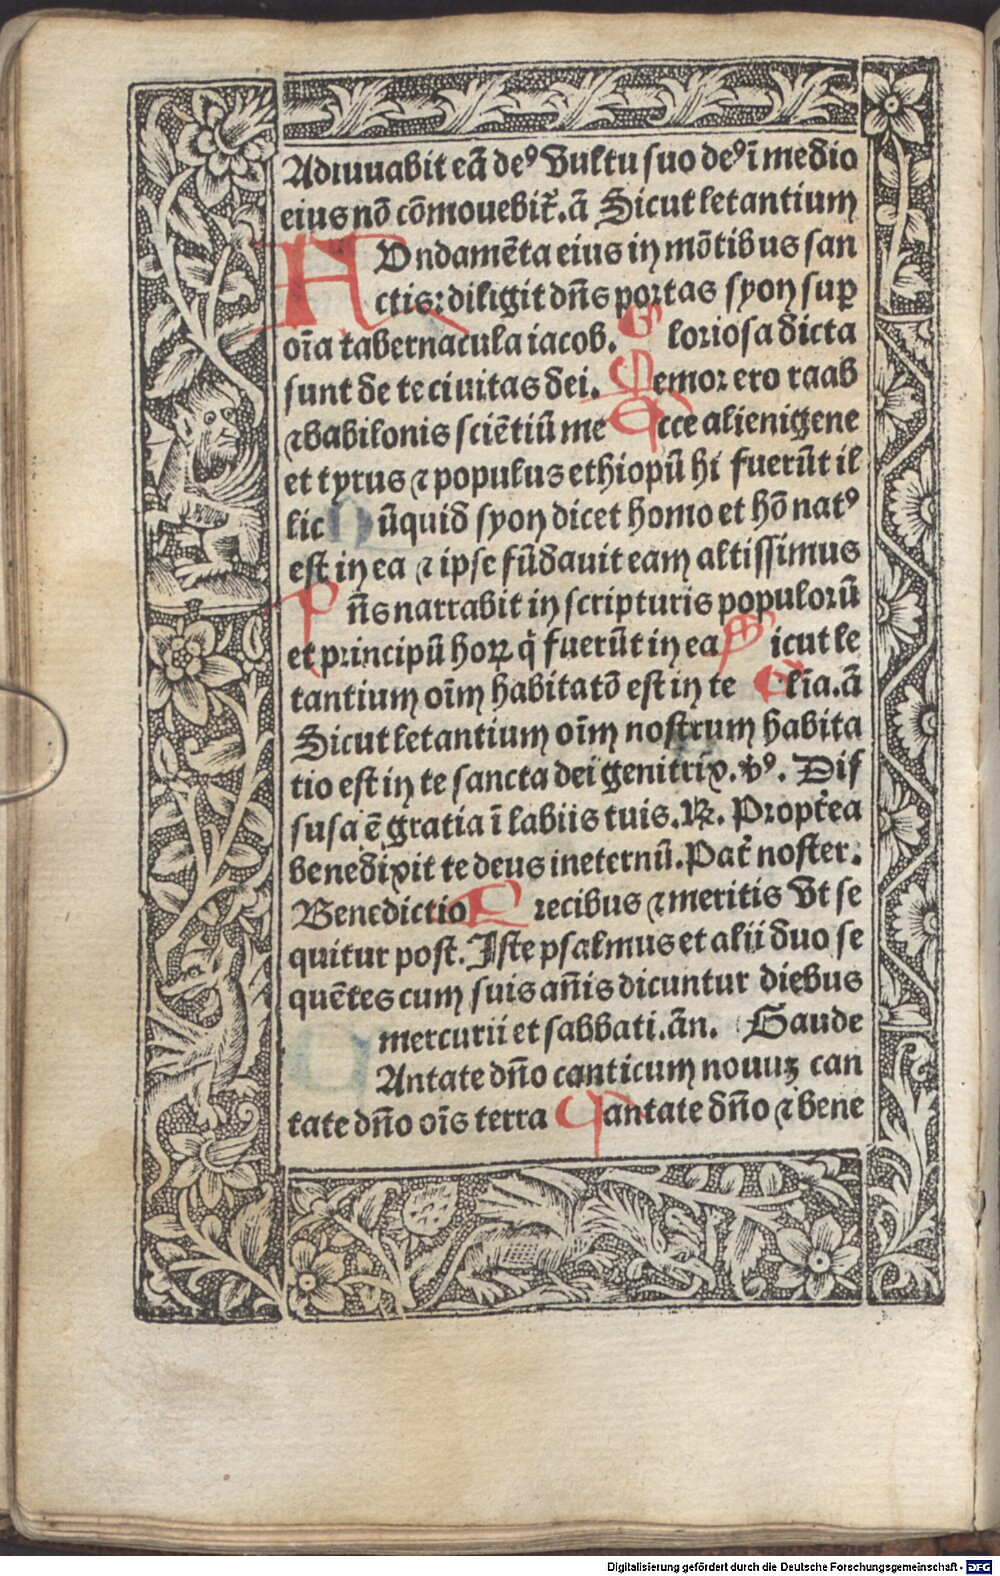 Adiuuabit eā deꝰ Vultu suo deꝰ ī medio
eius nō cōmouebit᷑. ā Sicut letantium
Vndamēta eius in mōtibus san
ctis: diligit dn̄s portas syon suꝑ
oīa tabernacula iacob. G loriosa dicta
sunt de te ciuitas dei. Memor ero raab
⁊ babilonis sciētiū me Ecce alienigene
et tyrus ⁊ populus ethiopū hi fuerūt il
lic N ūquid syon dicet homo et hō natꝰ
est in ea ⁊ ipse fūdauit eam altissimus
n̄s narrabit in scripturis populorū
et principū hoꝝ q̄ fuerūt in ea S icut le
tantium oīm habitatō est in te G l̄ia. ā
Sicut letantium oīm nostrum habita
tio est in te sancta dei genitrix. v̓ꝰ. Dif
fusa ē gratia ī labiis tuis. ℞. Propt̄ea
benedixit te deus in eternū. Pat̄ noster.
Benedictio P recibus ⁊ meritis Vt se
quitur post. Iste psalmus et alii duo se
quētes cum suis an̄is dicuntur diebus
mercurii et sabbati. ān. Gaude
C Antate dn̄o canticum nouuꝫ can
tate dn̄o oīs terra Cantate dn̄o ⁊ bene
Digitalisierung gefördert durch die Deutsche Forschungsgemeinschaft - DFG